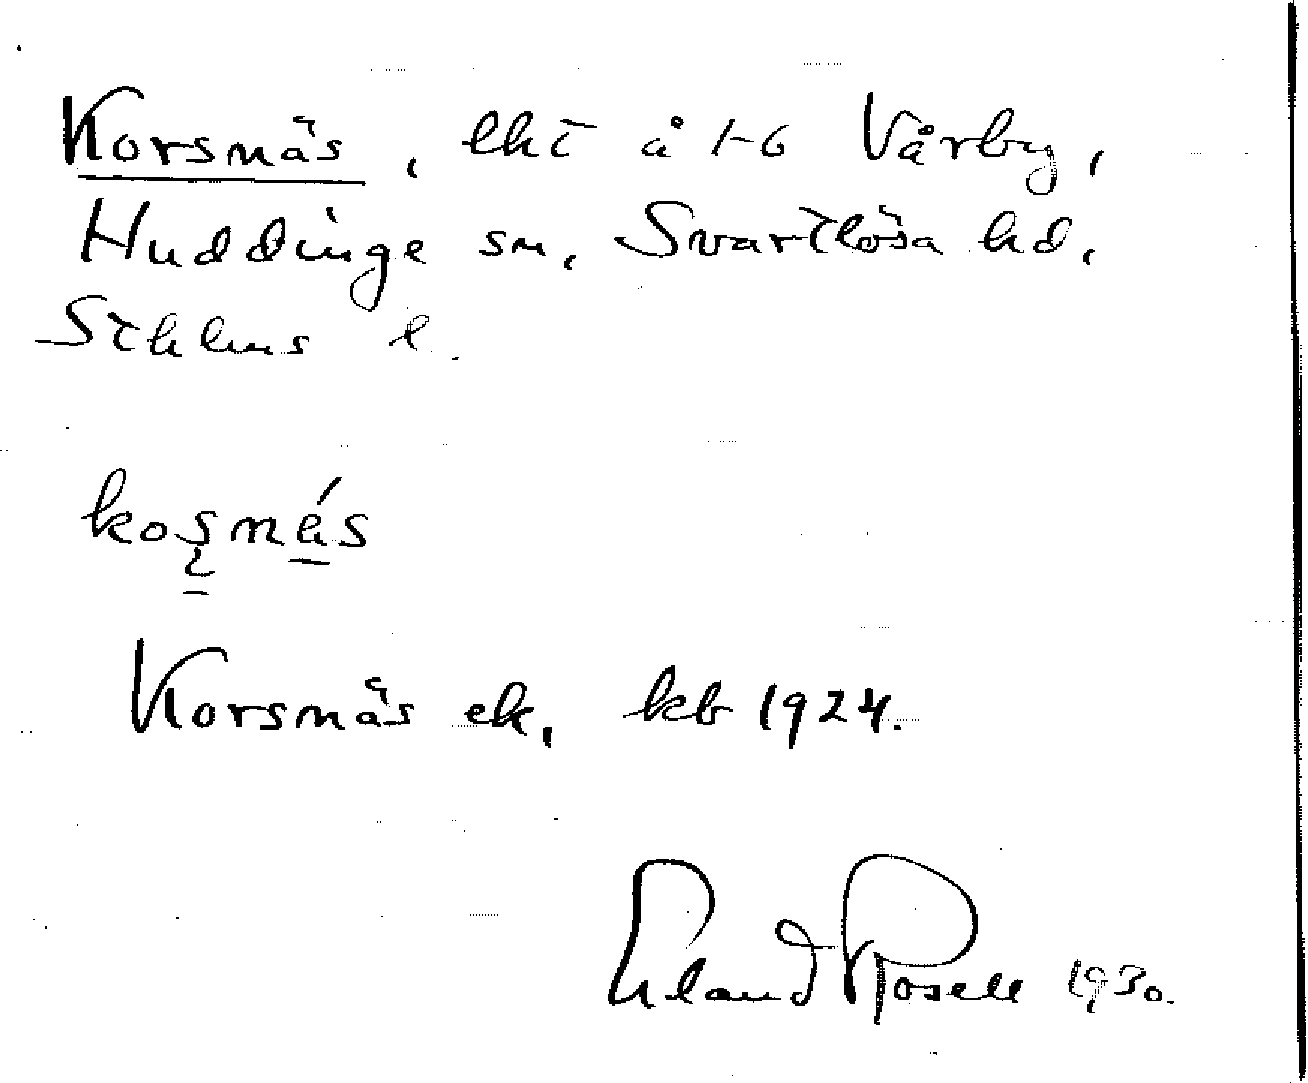 Korsnäs, lht å 1-6 Vårby,
Huddinge sn, Svartlösa hd,
Sthlms l.
kos̨nä́s
Korsnäs ek, kb 1924.
Erland Rosell 1930.